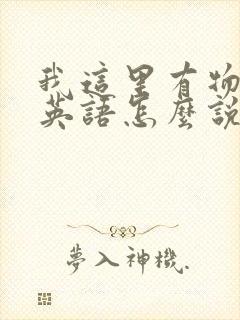 我這里有物
英語怎麼說
夢入神機.